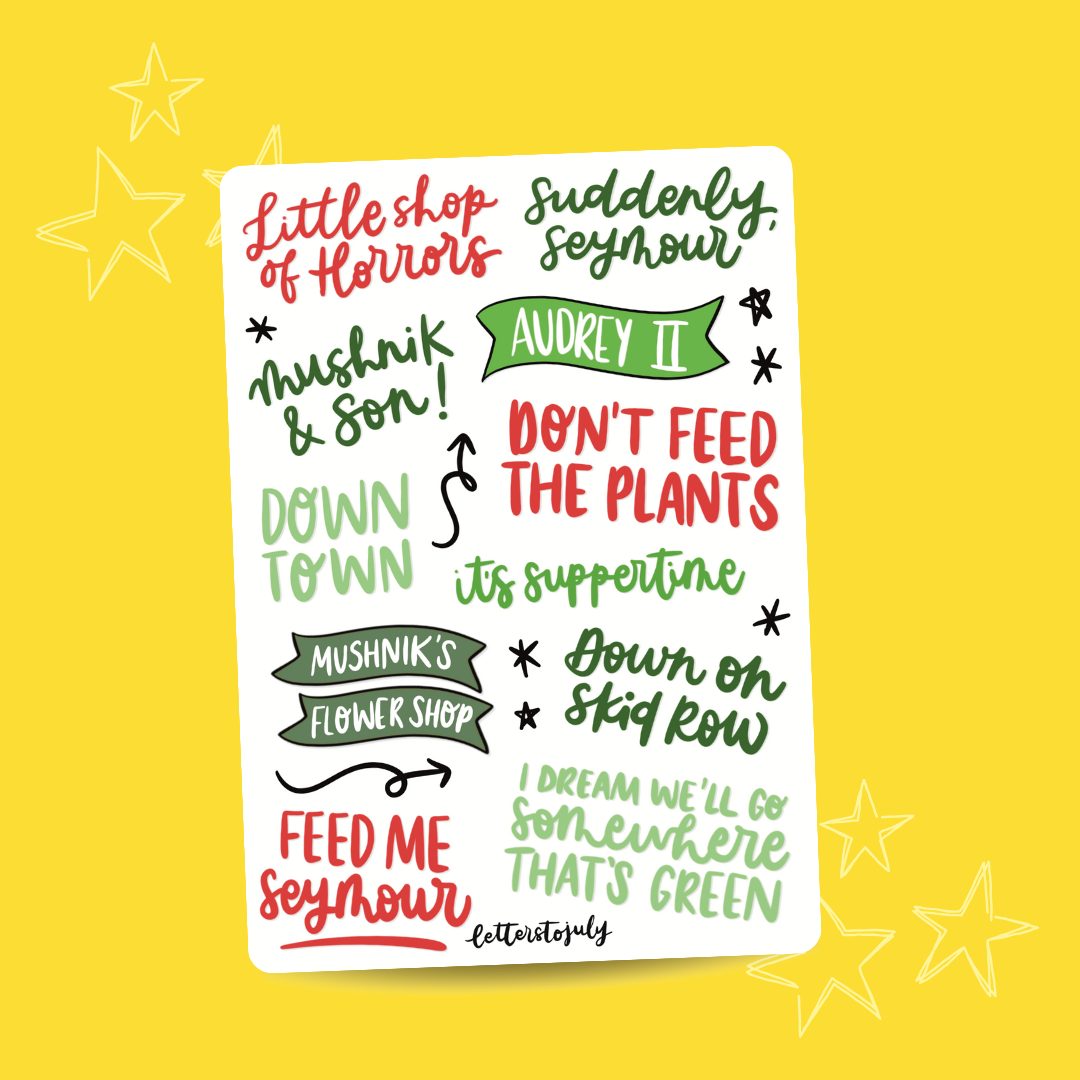 Little shop
of Horrors
Suddenly,
Seymour
mushnik
& Son!
AUDREY II
DON'T FEED
THE PLANTS
DOWN
TOWN
it's suppertime
MUSHNIK'S
FLOWER SHOP
Down on
Skid Row
FEED ME
Seymour
I DREAM WE'LL GO
Somewhere
THAT'S GREEN
letterstojuly